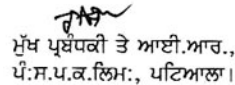 ਮੁੱਖ ਪ੍ਰਬੰਧਕੀ ਤੇ ਆਈ.ਆਰ.,
ਪੰ:ਸ.ਪ.ਕ.ਲਿਮ:, ਪਟਿਆਲਾ।